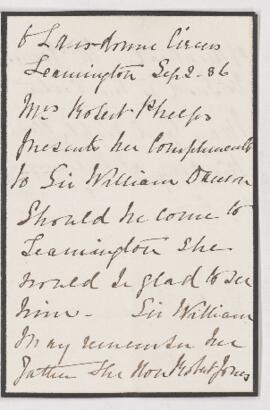 6 Lansdowne Circus
Leamington Sep 2 - 86
Mrs Robert Phelps
presents her Compliments
to Sir William Dawson
Should he come to
Leamington She
would be glad to see
him - Sir William
may remember her
father The Hon Robert Jones